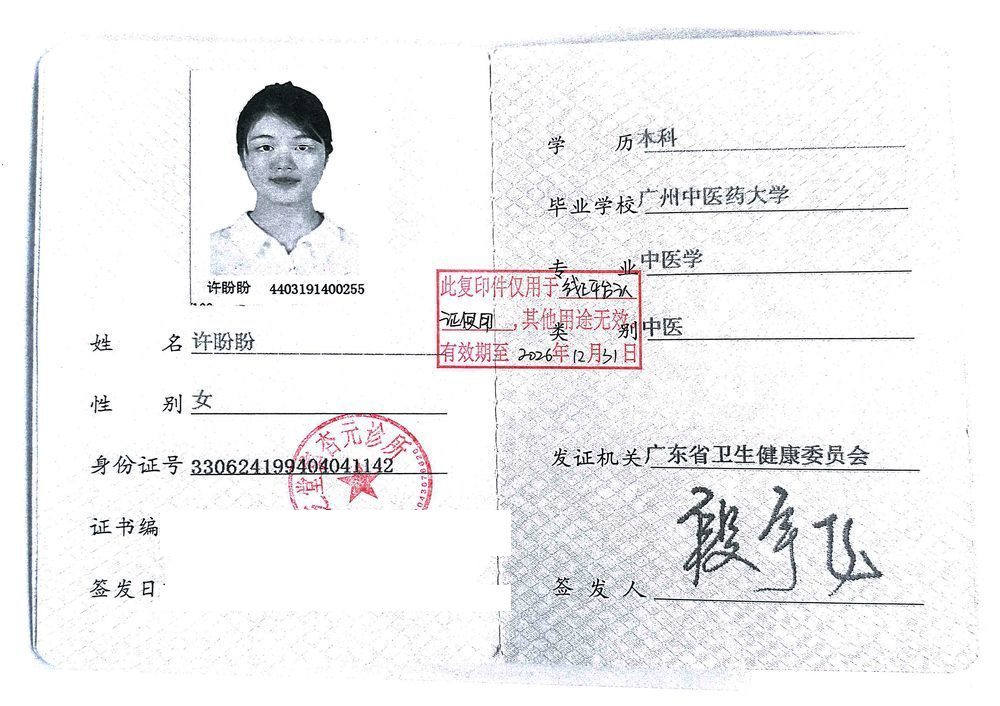 许盼盼 4403191400255
姓 名 许盼盼
性 别 女
身份证号 330624199404041142
证书编
签发日
学 历 本科
毕业学校 广州中医药大学
专 业 中医学
类 别 中医
发证机关 广东省卫生健康委员会
签发人 段宇飞
此复印件仅用于线上平台认
证使用,其他用途无效
有效期至 2026年12月31日
杏元诊所